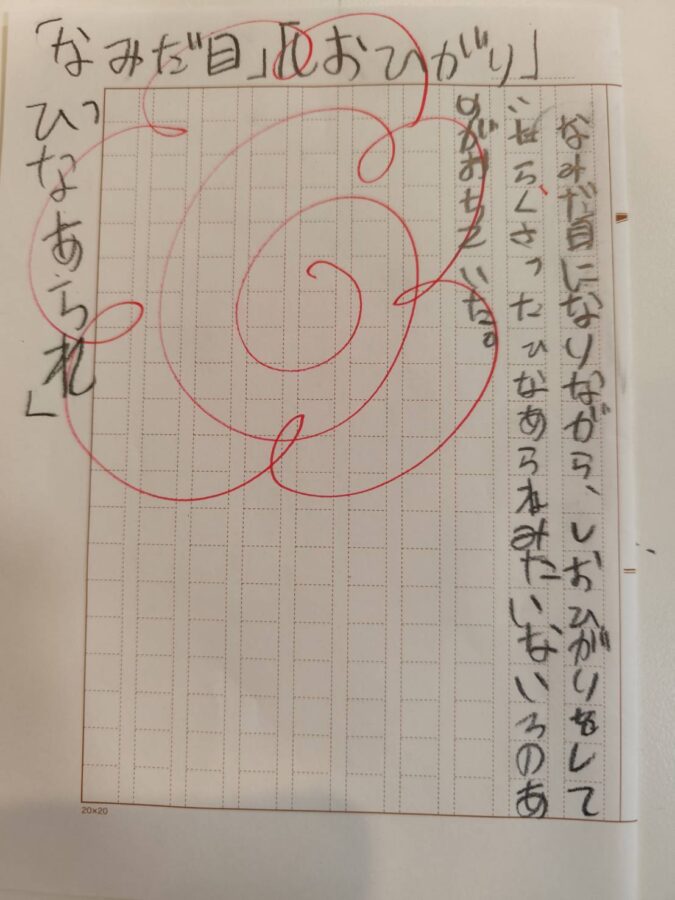 「なみだ目」「しおひがり」
「ひなあられ」
なみだ目になりながら、しおひがりをして
いたらくさったひなあられみたいないろのあ
めがおちていた。
20×20